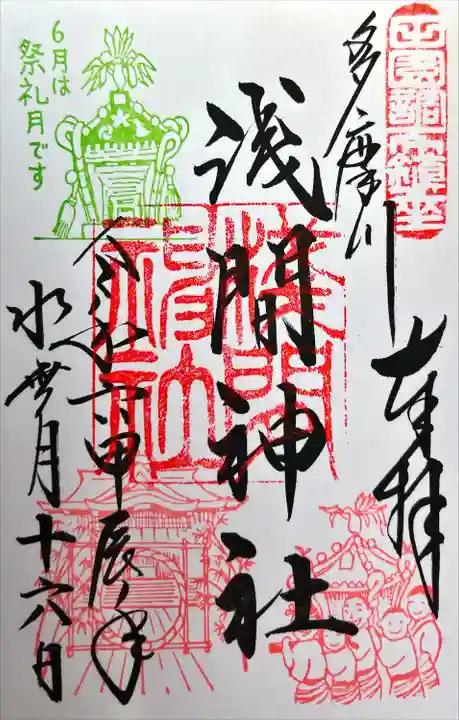 田園調布鎮座
奉拝
多摩川
浅間神社
浅間
神社
令和六甲辰年
水無月十六日
6月は
祭礼月です